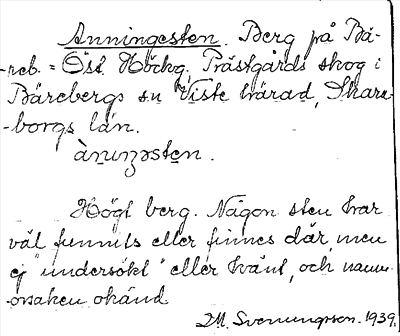 Anningesten. Berg på Bä-
-reb. = Öst. Höckg. Prästgårds skog i
Bärebergs sn Viste härad, Skara-
-borgs län.
ànuŋəsten.
Högt berg. Någon sten har
väl funnits eller finnes där, men
ej "undersökt" eller känt, och namn-
-orsaken okänd
D.M. Svenungsson. 1939.